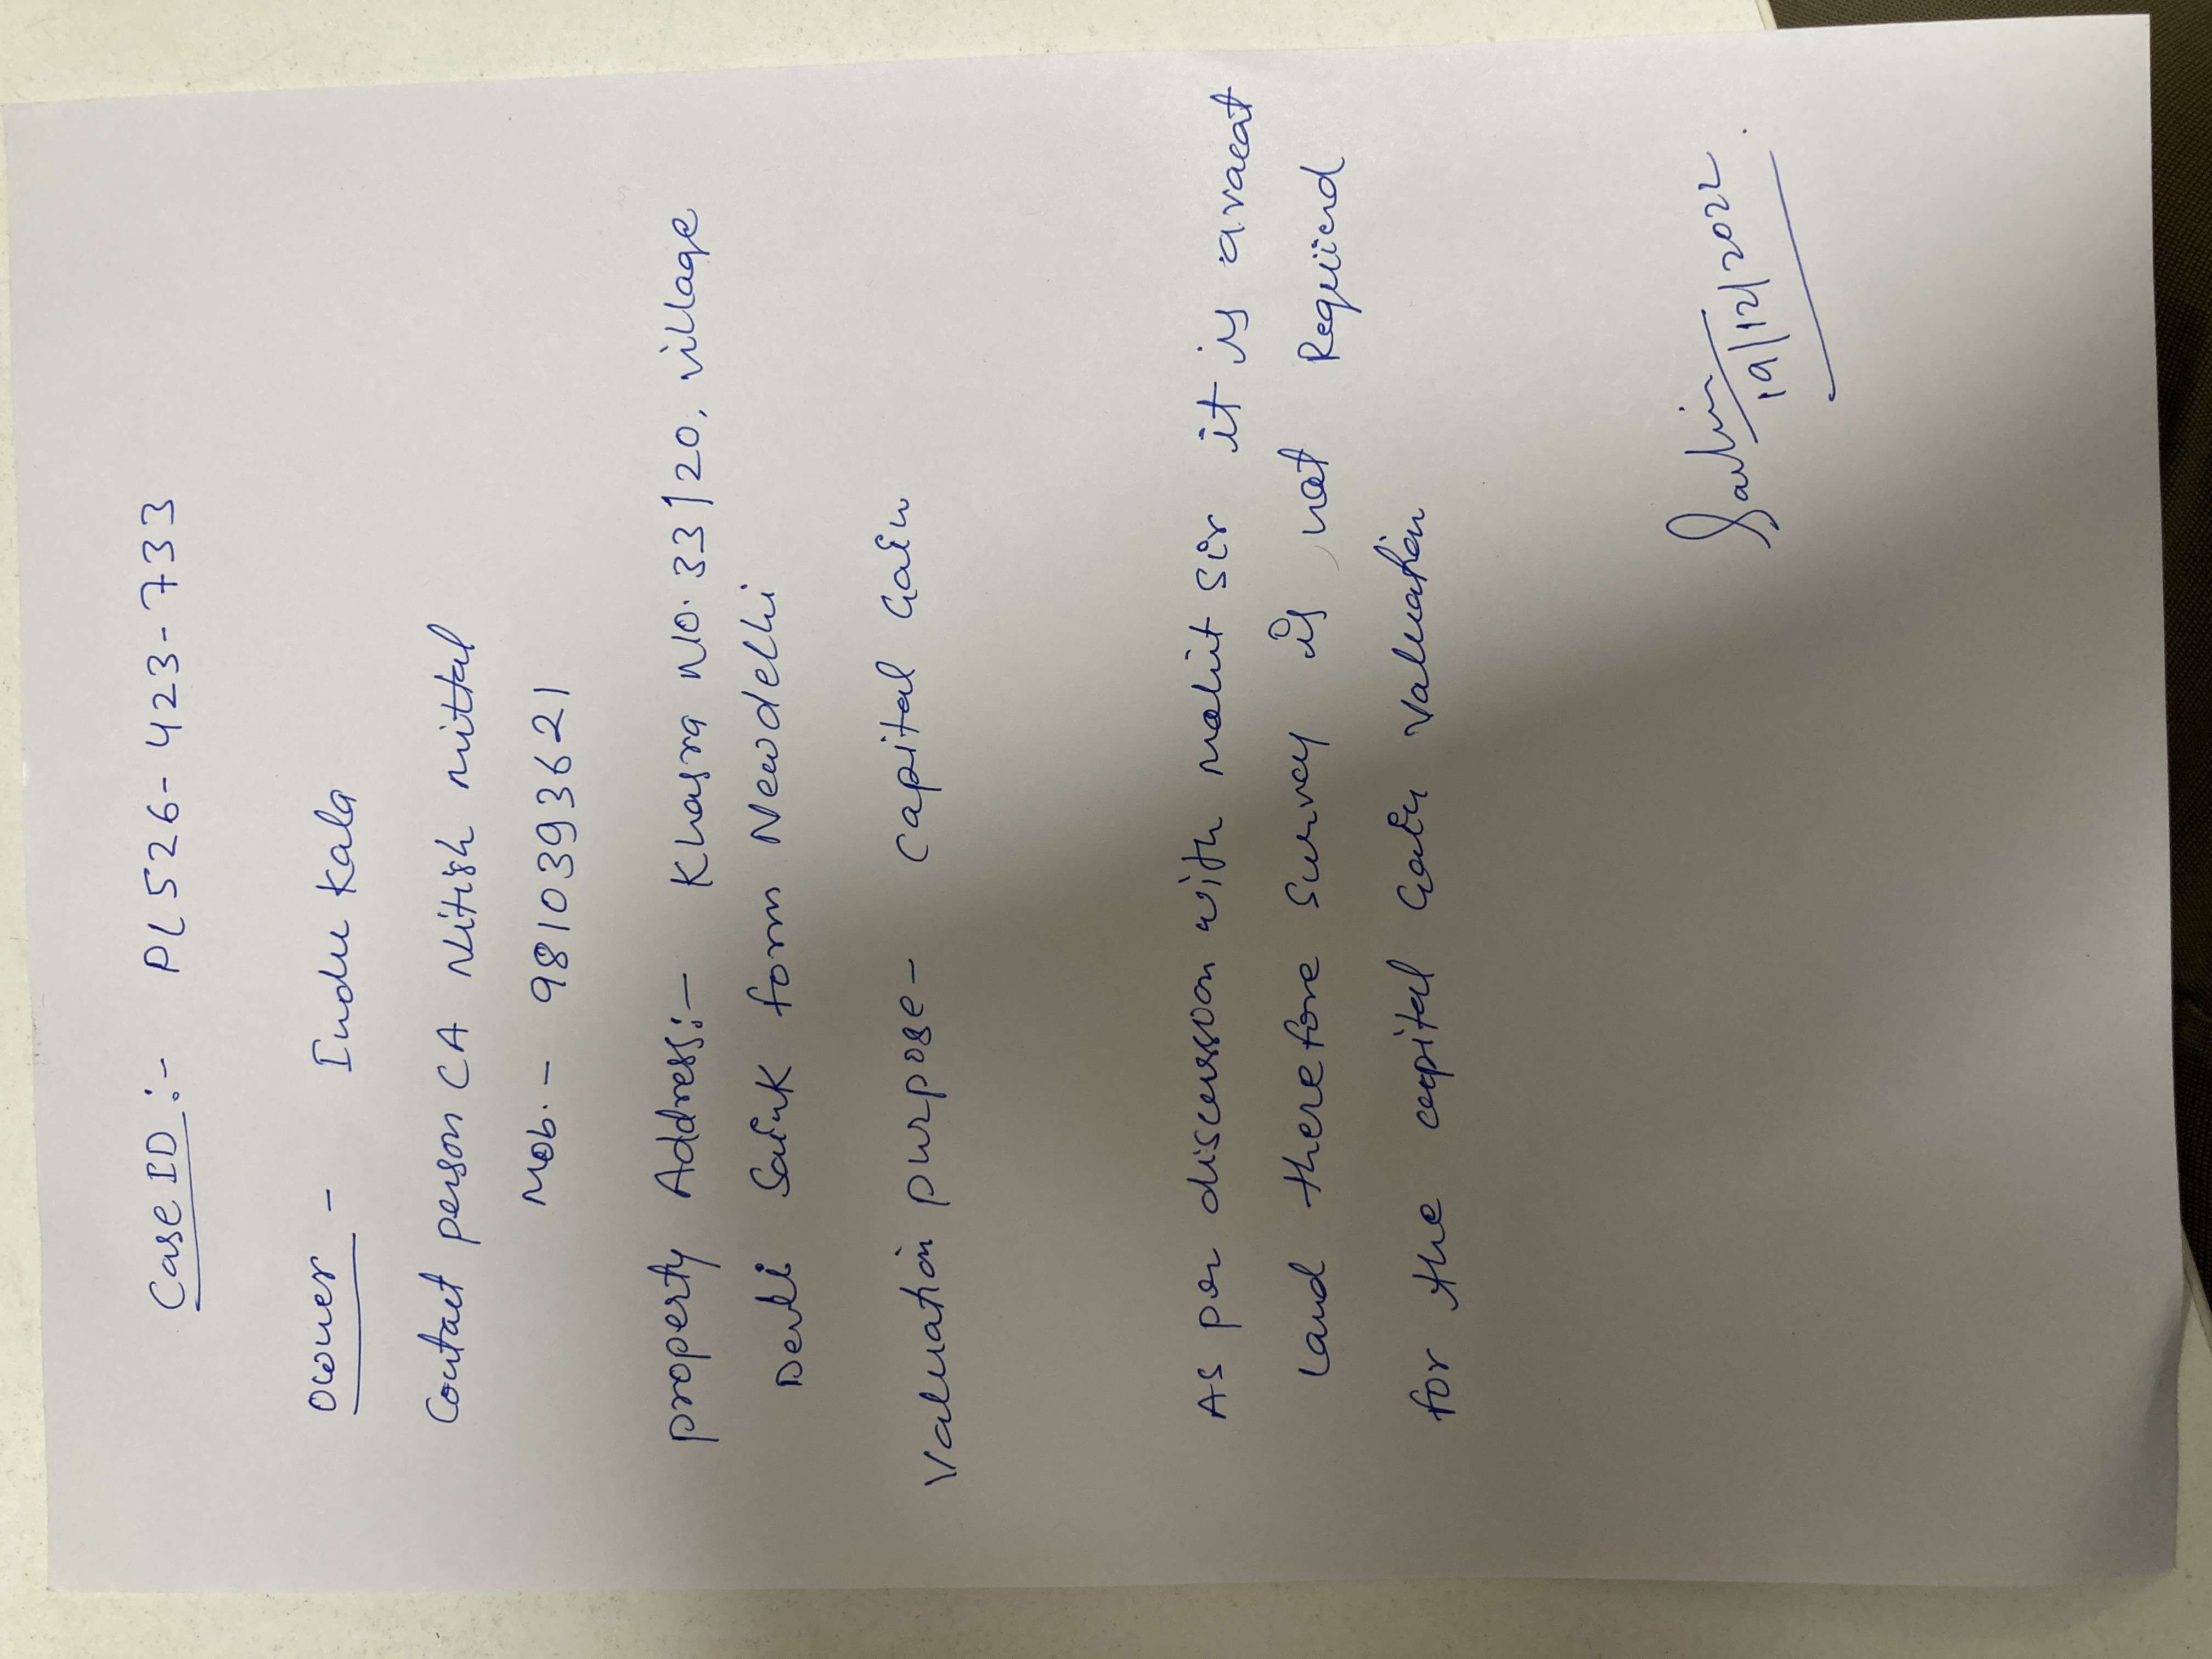 Case ID:- PL526-423-733
Owner - Indu Kala
Contact person CA Nitish Mittal
Mob. - 9810393621
property Address:- Khasra No. 33/20, village
Devli Sainik farm New delhi
Valuation purpose - Capital Gain
As per discussion with Mohit Sir it is a vacant
Land therefore Survey is not Required
for the capital Gain Valuation
19/12/2022